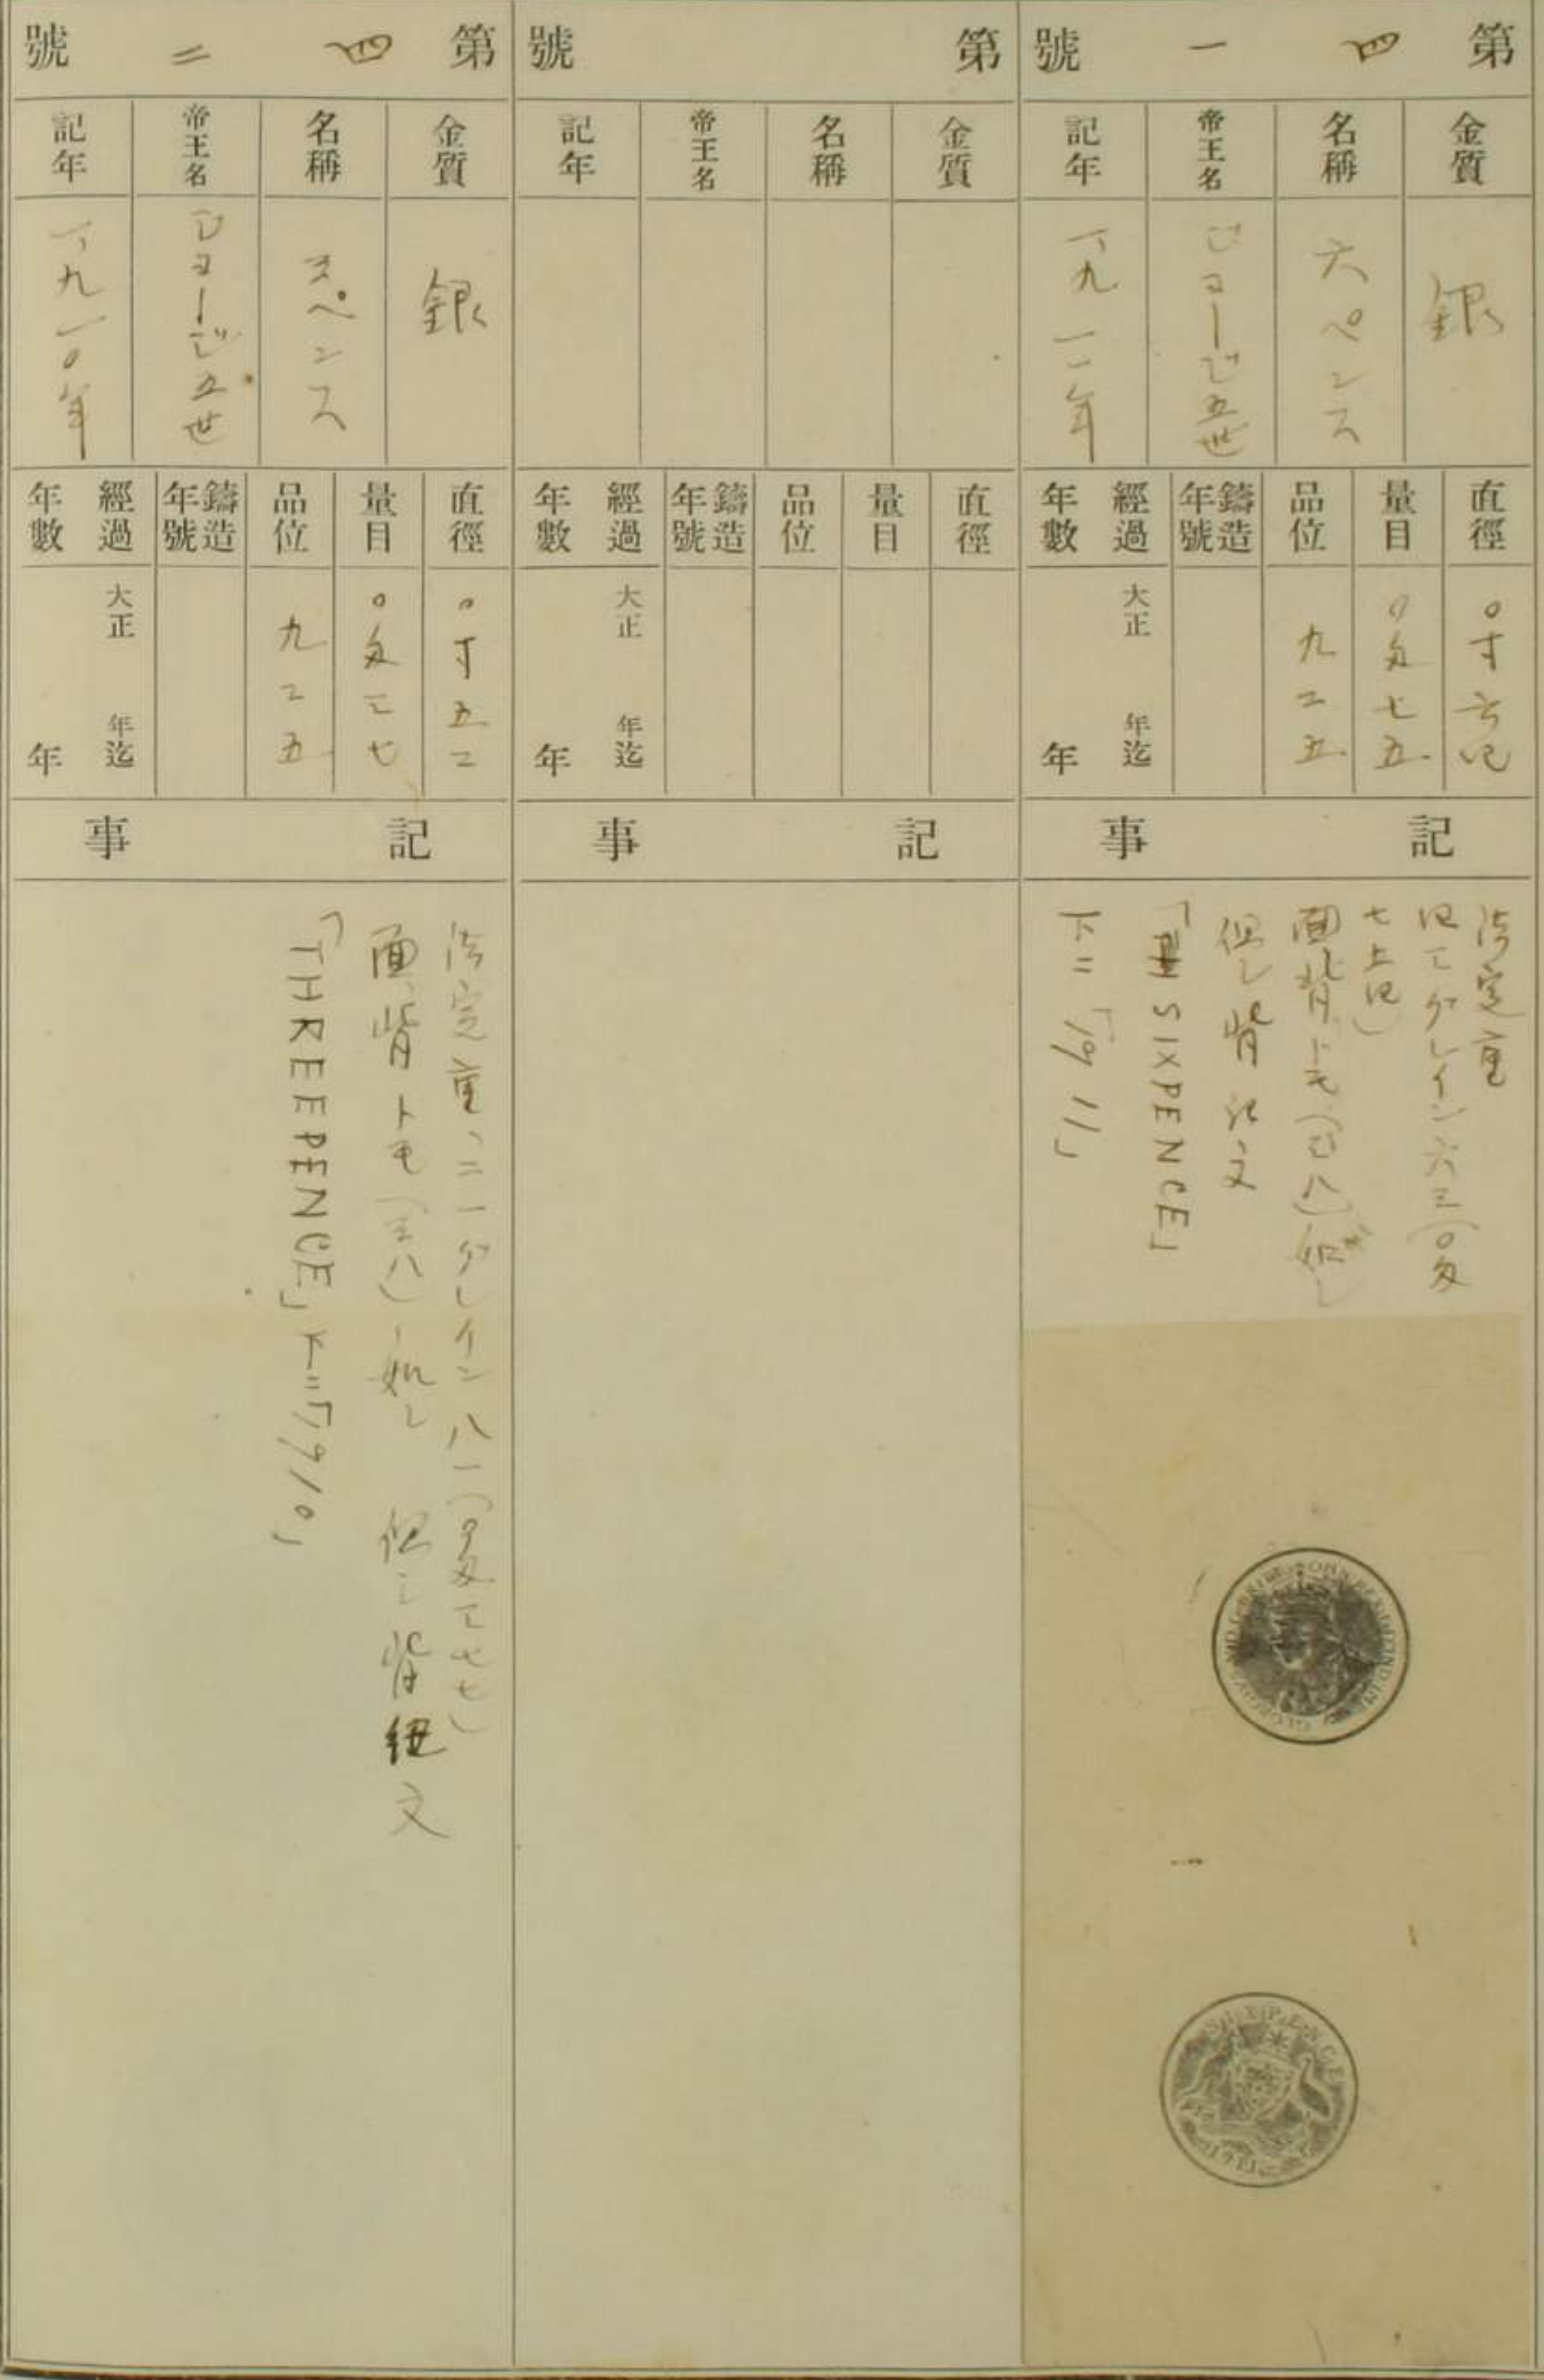 第四一號
金質
銀
名稱
六ペンス
帝王名
ジョージ五世
記年
一、九一一年
直徑
〇寸六四
量目
〇匁七五
品位
九二五
鑄造年號
經過年數
大正 年迄
年
記事
法定重
四三グレイン六三(〇匁
七五四)
面背トモ(三八)如シ
但シ背記文
「SIXPENCE」
下ニ「1911」
SIXPENCE
1911
第 號
金質
名稱
帝王名
記年
直徑
量目
品位
鑄造年號
經過年數
大正 年迄
年
記事
第四二號
金質
銀
名稱
三ペンス
帝王名
ジョージ五世
記年
一、九一〇年
直徑
〇寸五二
量目
〇匁三七
品位
九二五
鑄造年號
經過年數
大正 年迄
年
記事
法定重、二一グレイン八一(〇匁三七七)
面、背トモ(三八)ノ如シ 但シ背 文
「THREEPENCE」下ニ「1910」